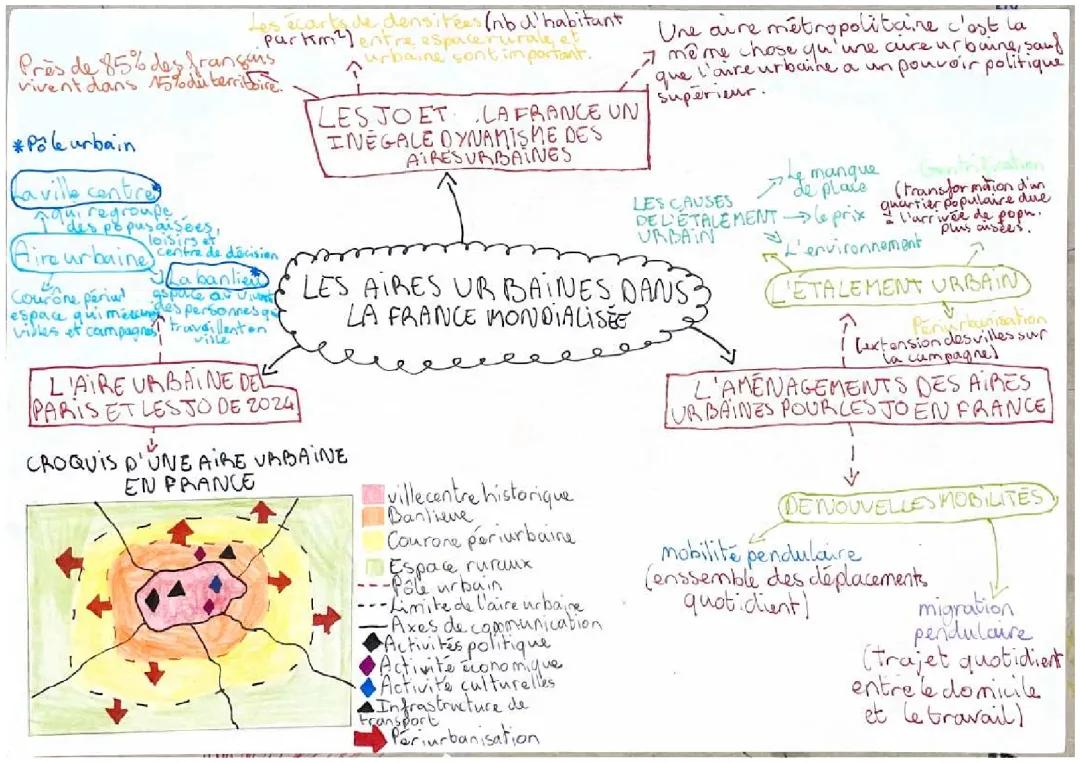 Les écarts de densitées (nb d'habitant
par km²) entre espace rurale et
urbaine sont important.
Près de 85% des français
vivent dans 15% du territoire.
Une aire métropolitaine c'est la
même chose qu'une aire urbaine, sauf
que l'aire urbaine a un pouvoir politique
supérieur.
LES JO ET ... LA FRANCE UN
INÉGALE DYNAMISME DES
AIRES URBAINES
*Pôle urbain
La ville centre*
qui regroupe
des popus aisées,
loisirs et
centre de décision
Aire urbaine
La banlieu*
espace où vivent
des personnes qui
travaillent en
ville
Courone périur
espace qui mélange
villes et campagnes
LES CAUSES
DE L'ÉTALEMENT
URBAIN
Le manque
de place
le prix
L'environnement
Gentrification
(transformation d'un
quartier populaire due
à l'arrivée de popu.
plus aisées.
L'ÉTALEMENT URBAIN
Périurbanisation
(extension des villes sur
la campagne)
LES AIRES URBAINES DANS
LA FRANCE MONDIALISÉE
L'AIRE URBAINE DE
PARIS ET LES JO DE 2024
L'AMÉNAGEMENTS DES AIRES
URBAINES POUR LES JO EN FRANCE
CROQUIS D'UNE AIRE URBAINE
EN FRANCE
ville centre historique
Banlieue
Courone périurbaine
Espace ruraux
Pôle urbain
Limite de l'aire urbaine
Axes de communication
Activités politique
Activité économique
Activité culturelles
Infrastructure de
transport
Périurbanisation
DE NOUVELLES MOBILITÉS
mobilité pendulaire
(enssemble des déplacements
quotidient)
migration
pendulaire
(Trajet quotidient
entre le domicile
et le travail)